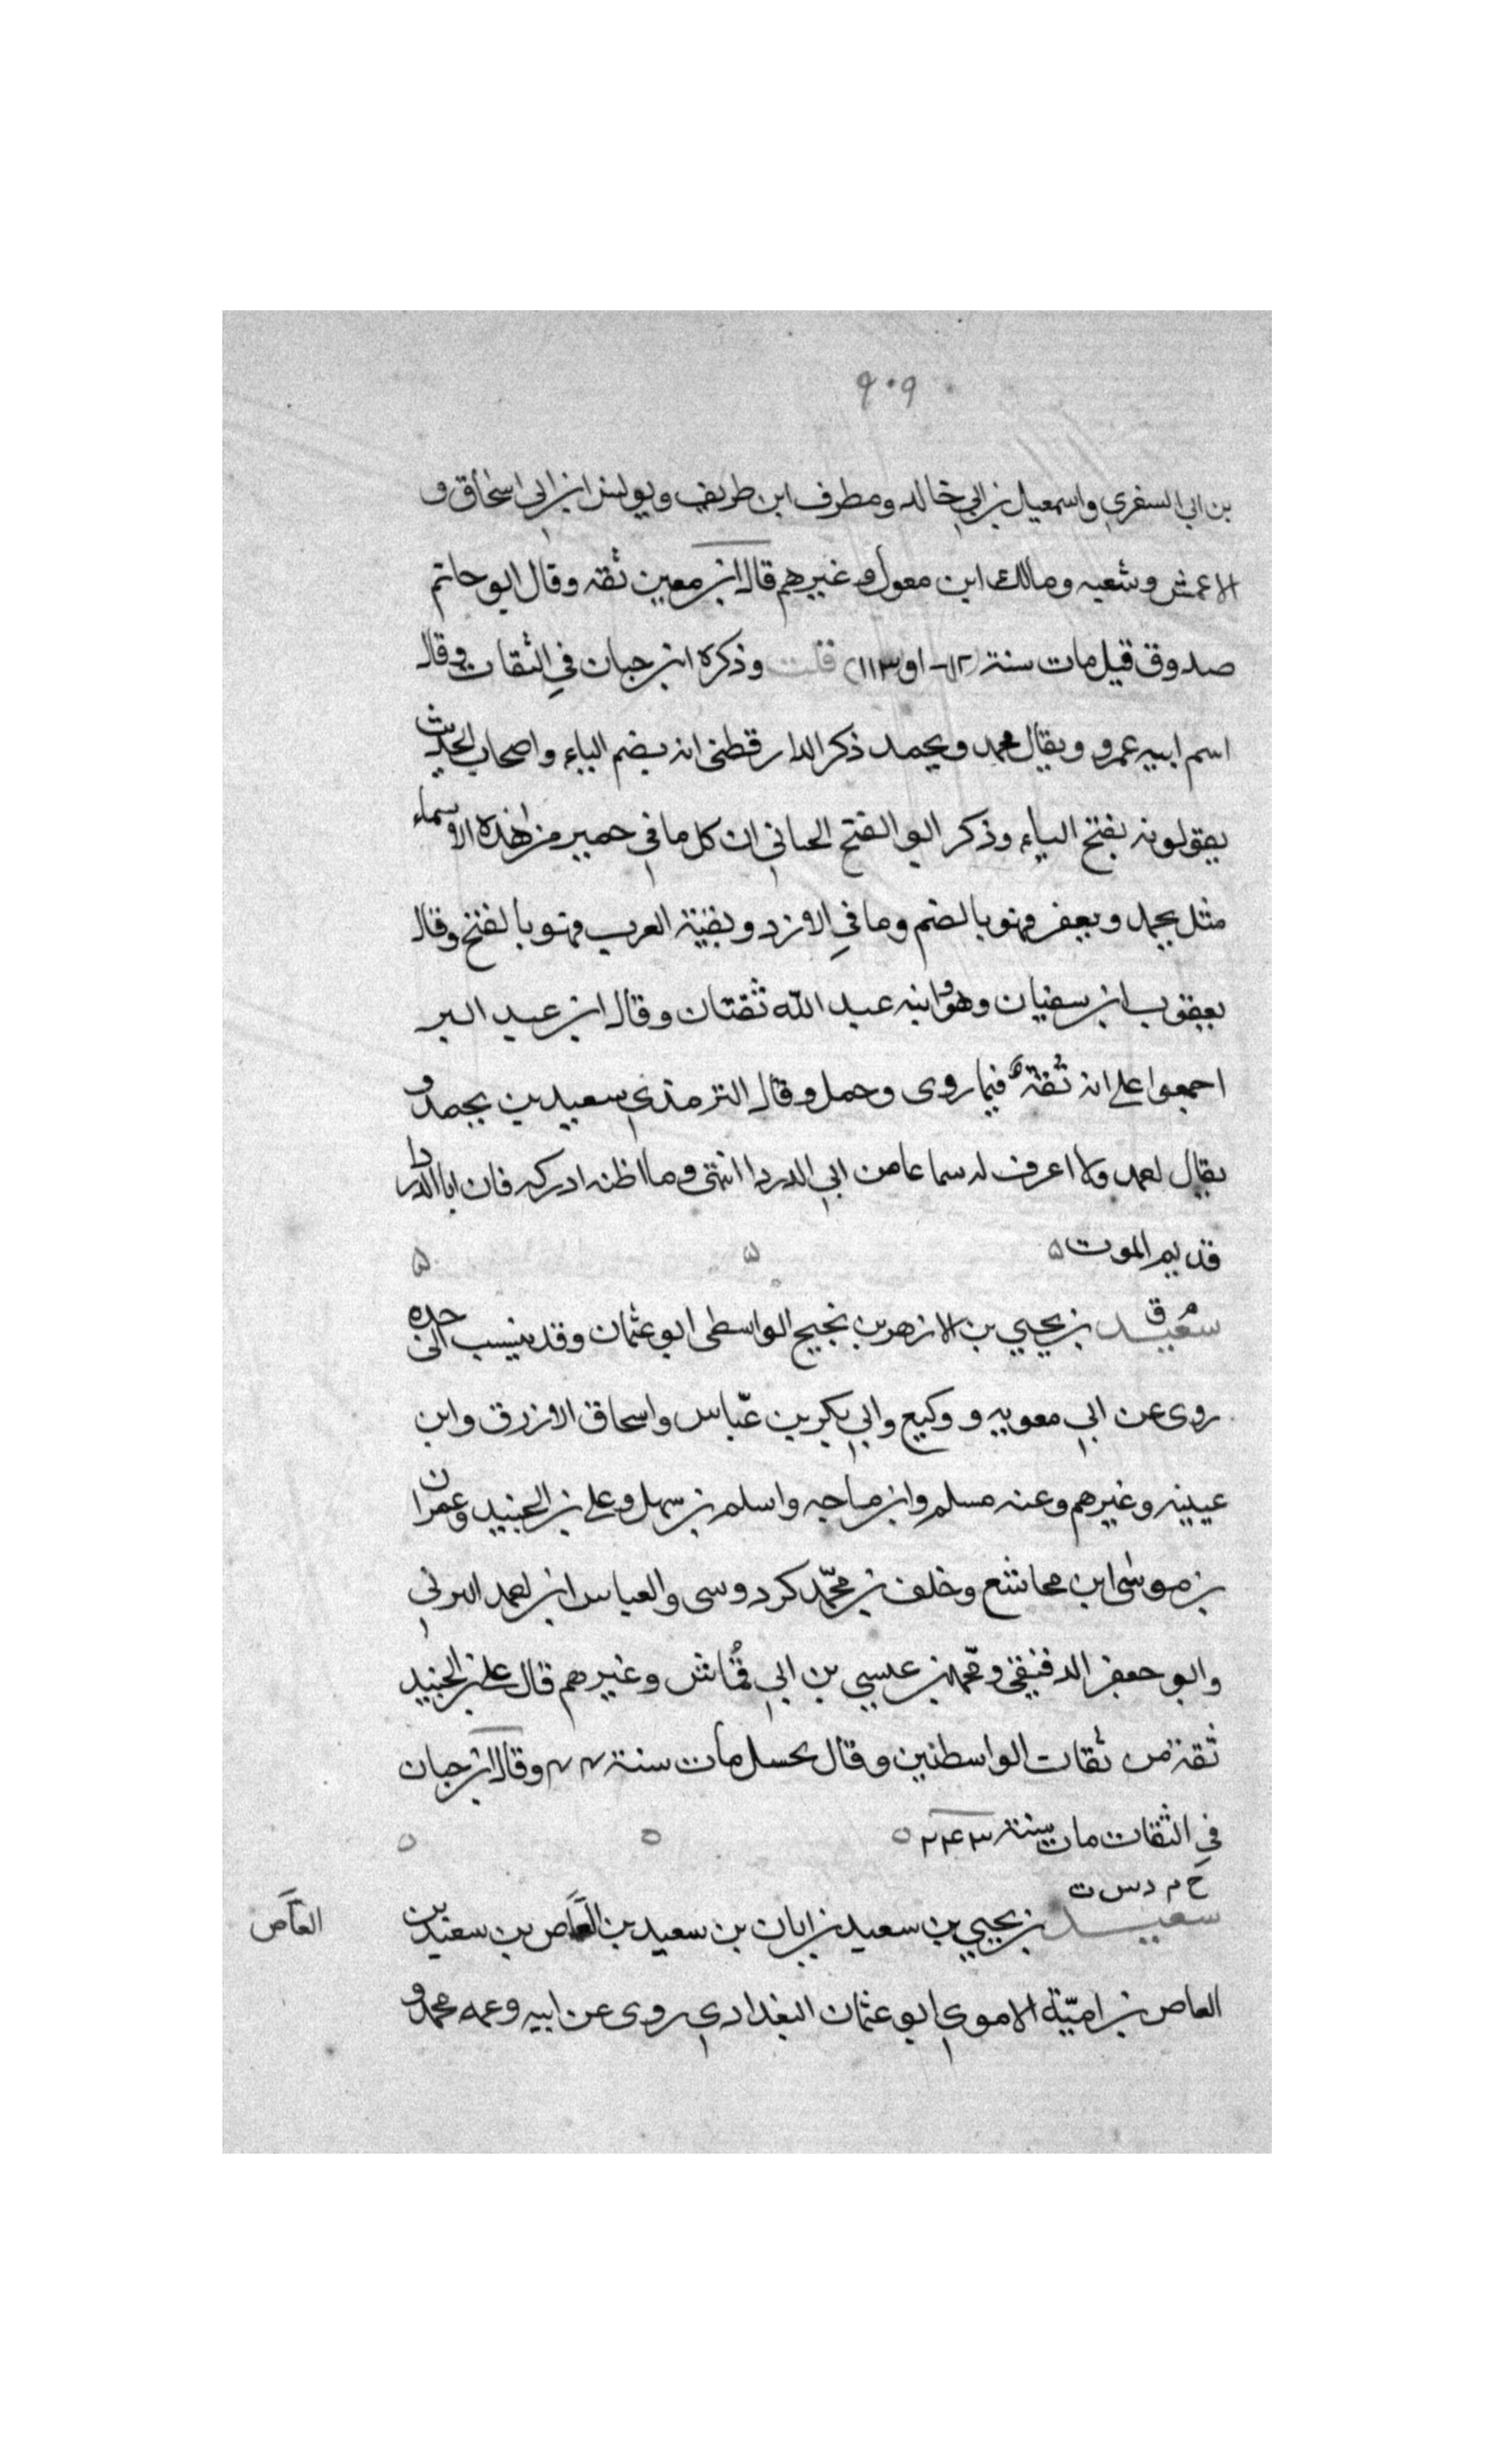 ٩٠٩
بن ابي السفري واسمعيل بن ابي خالد ومطرف ابن طريف ويونس ابن ابي اسحاق و
الاعمش وشعبه ومالك ابن معول وغيرهم قال ابن معين ثقه وقال ابو حاتم
صدوق قيل مات سنة او ١١٣) قلت وذكره ابن حبان في الثقات وقال
اسم ابيه عمرو ويقال محمد ويحمد ذكر الدارقطنى انه بضم الياء واصحاب الحديث
يقولونه بفتح الياء وذكر ابو الفتح الحياني ان كل ما في حمير من هذه الاسماء
مثل يحمل ويعفر فهو بالضم وما في الازد وبقية العرب فهو بالفتح وقال
يعقوب ابن سفيان وهو وابنه عبد الله ثقتان وقال ابن عبد البر
اجمعوا على انه ثقة فيما روى وحمل وقال الترمذي سعيد بن يحمد و
يقال احمد ولا اعرف له سماعا من ابي الدردا انتهى وما اظنه ادركه فان ابا الدردا
قديم الموت ٥ ٥ ٥
م ق
سعيد بن يحيي بن الازهر بن نجيح الواسطى ابو عثمان وقد ينسب الى جده
روى عن ابي معويه و وكيع وابي بكر بن عباس واسحاق الازرق وابن
عيينه وغيرهم وعنه مسلم وابن ماجه واسلم بن سهل وعلي بن الجنيد وعمران
بن موسى ابن مجاشع وخلف بن محمد كردوسى والعباس ابن احمد البرتي
وابو جعفر الدقيقى ومحمد بن عيسي بن ابي قماش وغيرهم قال علي بن الجنيد
ثقة من ثقات الواسطيين وقال بحسل مات سنة وقال ابن حبان
في الثقات مات سنة ٢٤٣ ٥ ٥ ٥
خ م د س ت
سعيد بن يحيي بن سعيد بن ابان بن سعيد بن العاص بن سعيد بن
العاص
العاص بن امية الاموي ابو عثمان البغدادي روى عن ابيه وعمه محمد و